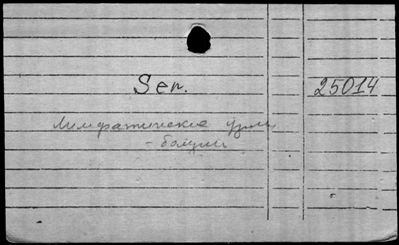 Sen. 25014
Лимфатические узлы
- бациллы